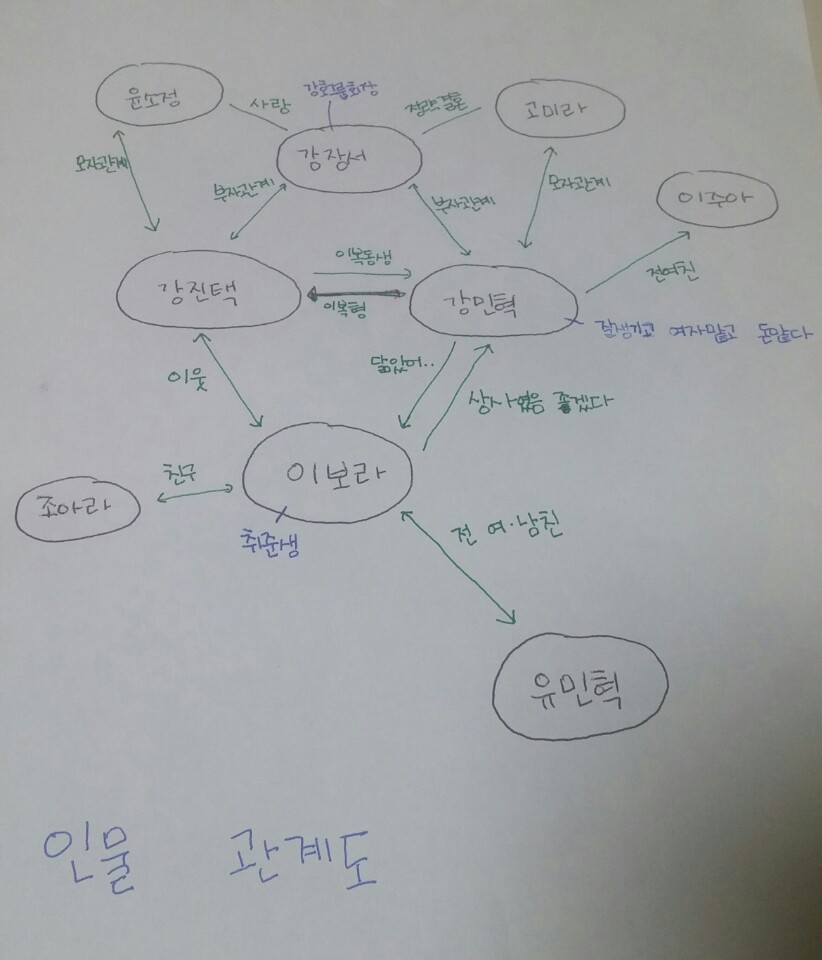 윤소정
사랑
강호그룹회장
정략결혼
고미라
강장서
모자관계
부자관계
부자관계
모자관계
이주아
강진택
이복동생
이복형
강민혁
전여친
잘생기고 여자많고 돈많다
이웃
닮았어..
상사였음 좋겠다
조아라
친구
이보라
취준생
전 여·남친
유민혁
인물 관계도